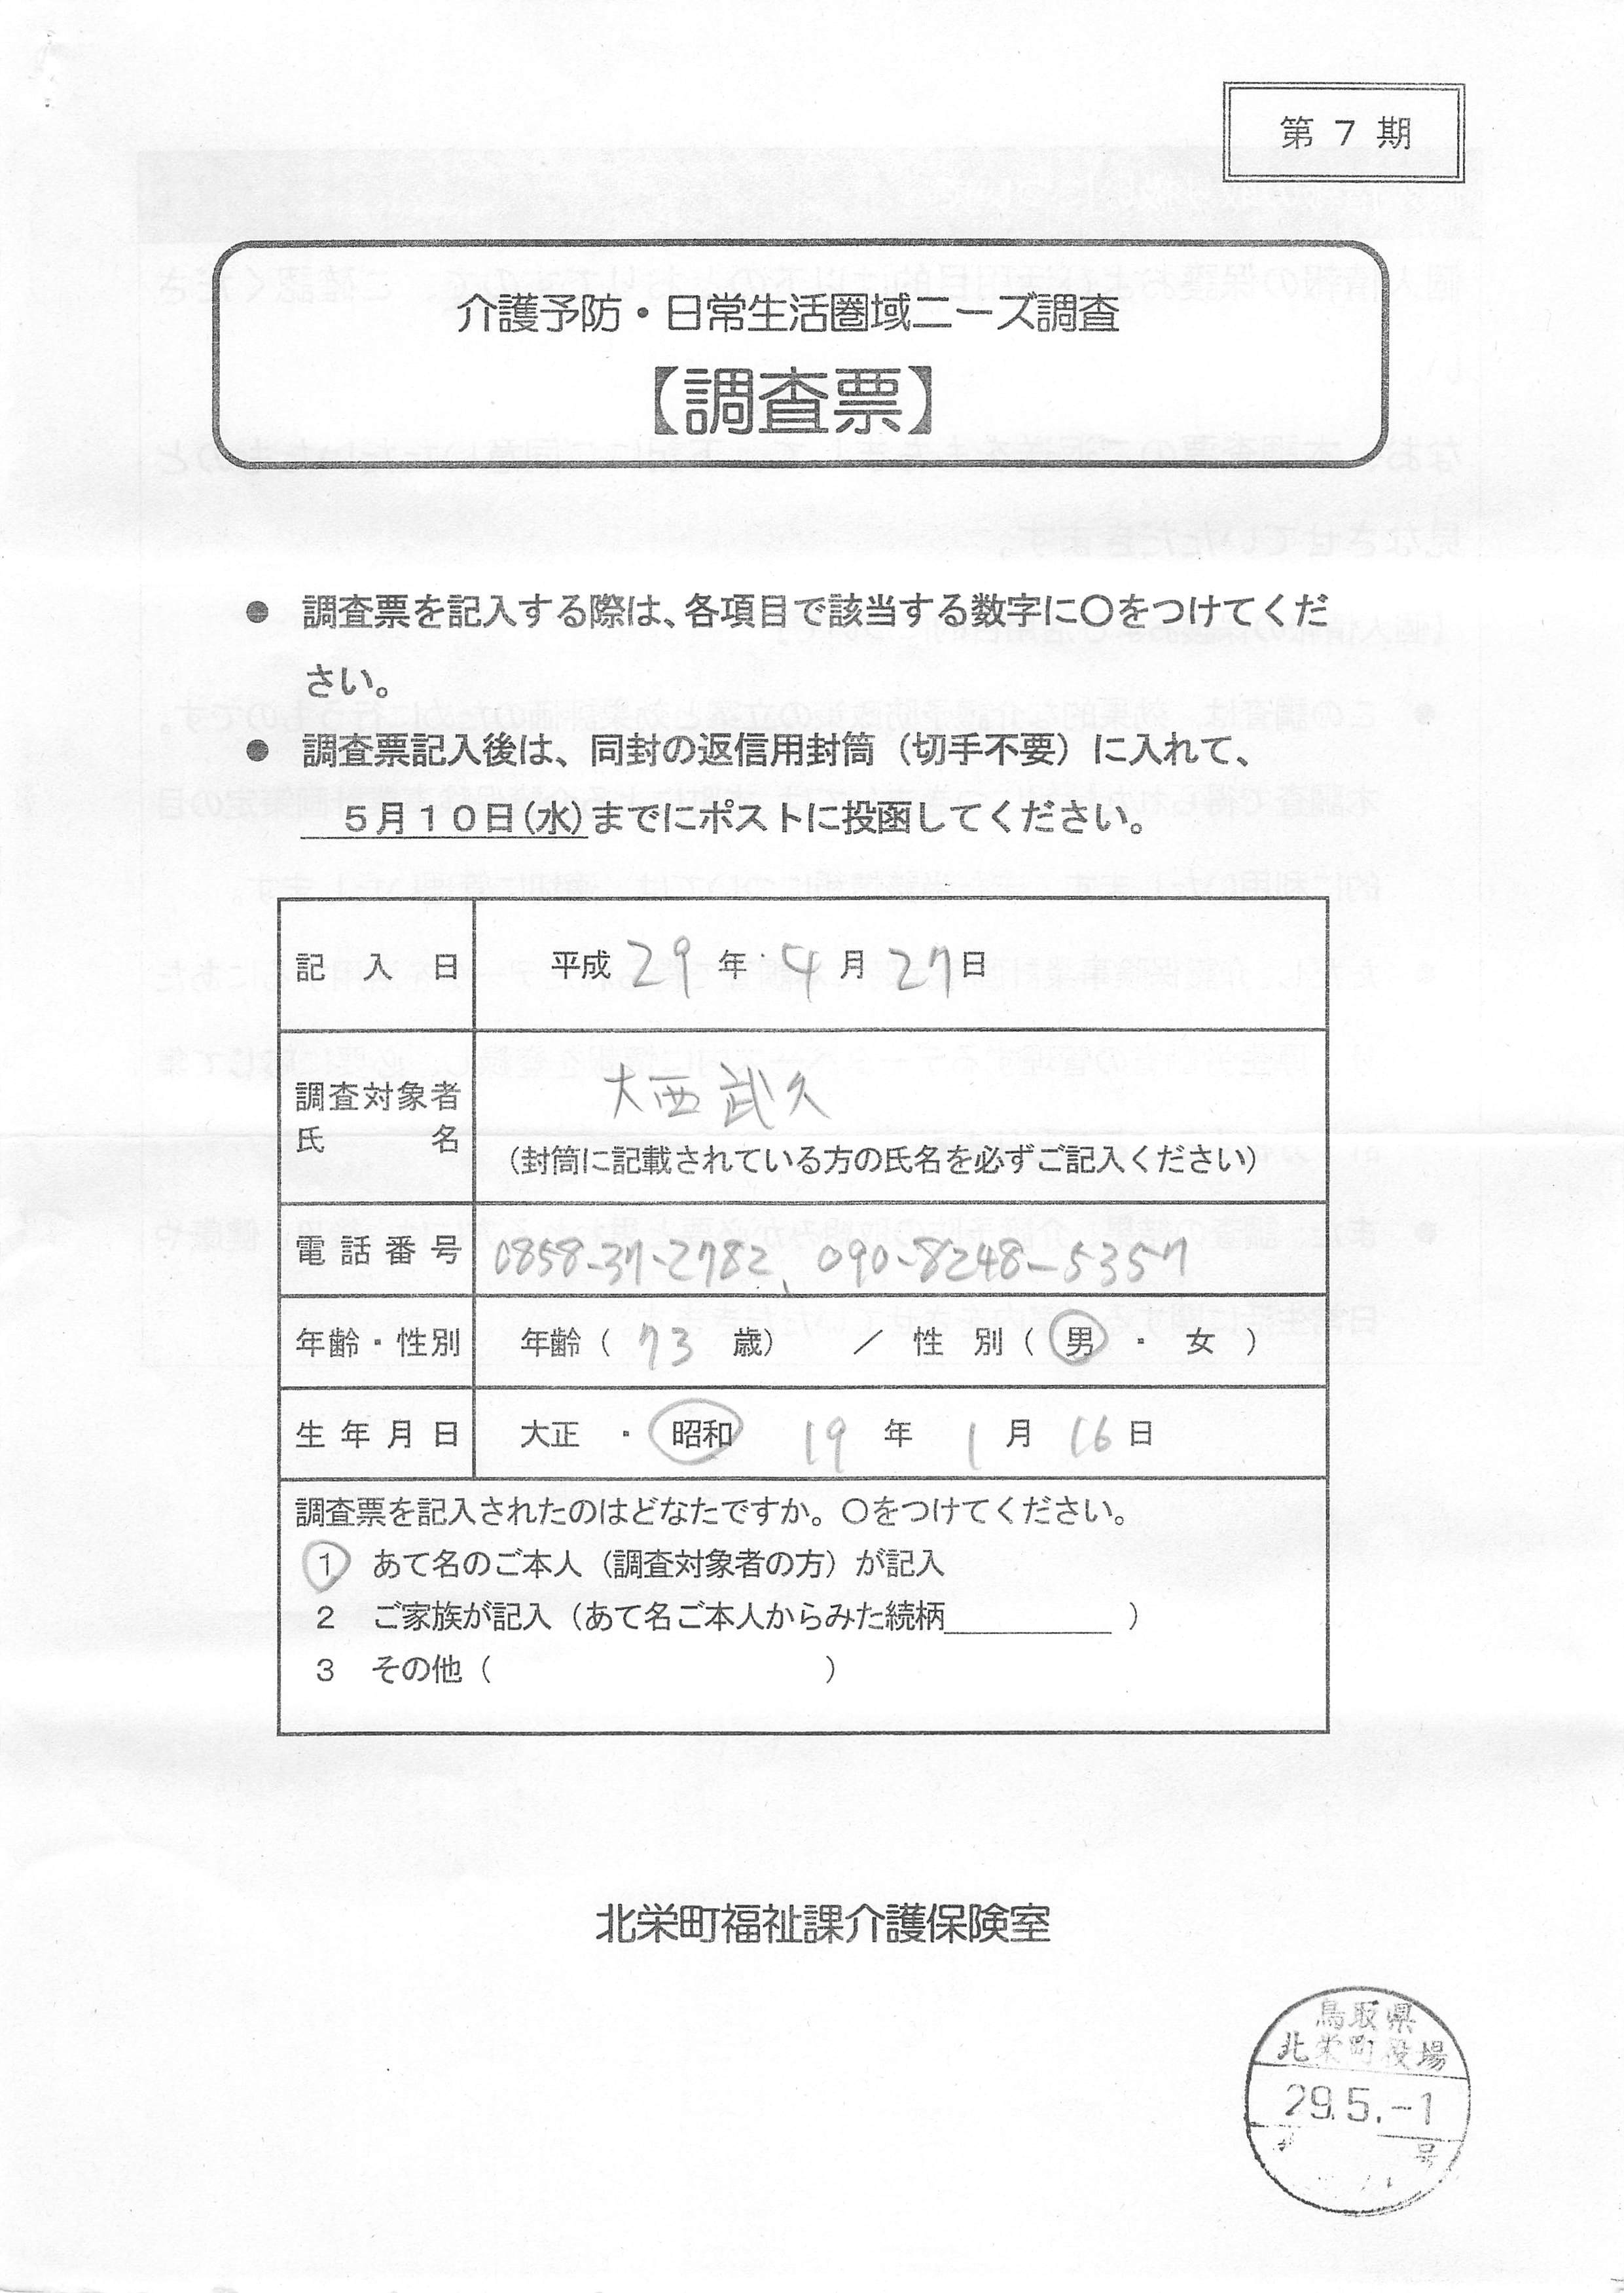 第 7 期
介護予防・日常生活圏域ニーズ調査
【調査票】
● 調査票を記入する際は、各項目で該当する数字に〇をつけてくだ
さい。
● 調査票記入後は、同封の返信用封筒（切手不要）に入れて、
５月１０日（水）までにポストに投函してください。
記入日 平成 29 年 4 月 27 日
調査対象者 大西武久
氏名 （封筒に記載されている方の氏名を必ずご記入ください）
電話番号 0858-37-2782、090-8248-5357
年齢・性別 年齢（ 73 歳） ／ 性別（ 男 ・ 女 ）
生年月日 大正 ・ 昭和 19 年 1 月 16 日
調査票を記入されたのはどなたですか。〇をつけてください。
1 あて名のご本人（調査対象者の方）が記入
2 ご家族が記入（あて名ご本人からみた続柄＿＿＿＿＿ ）
3 その他（ ）
北栄町福祉課介護保険室
鳥取県
北栄町役場
29.5.-1
号